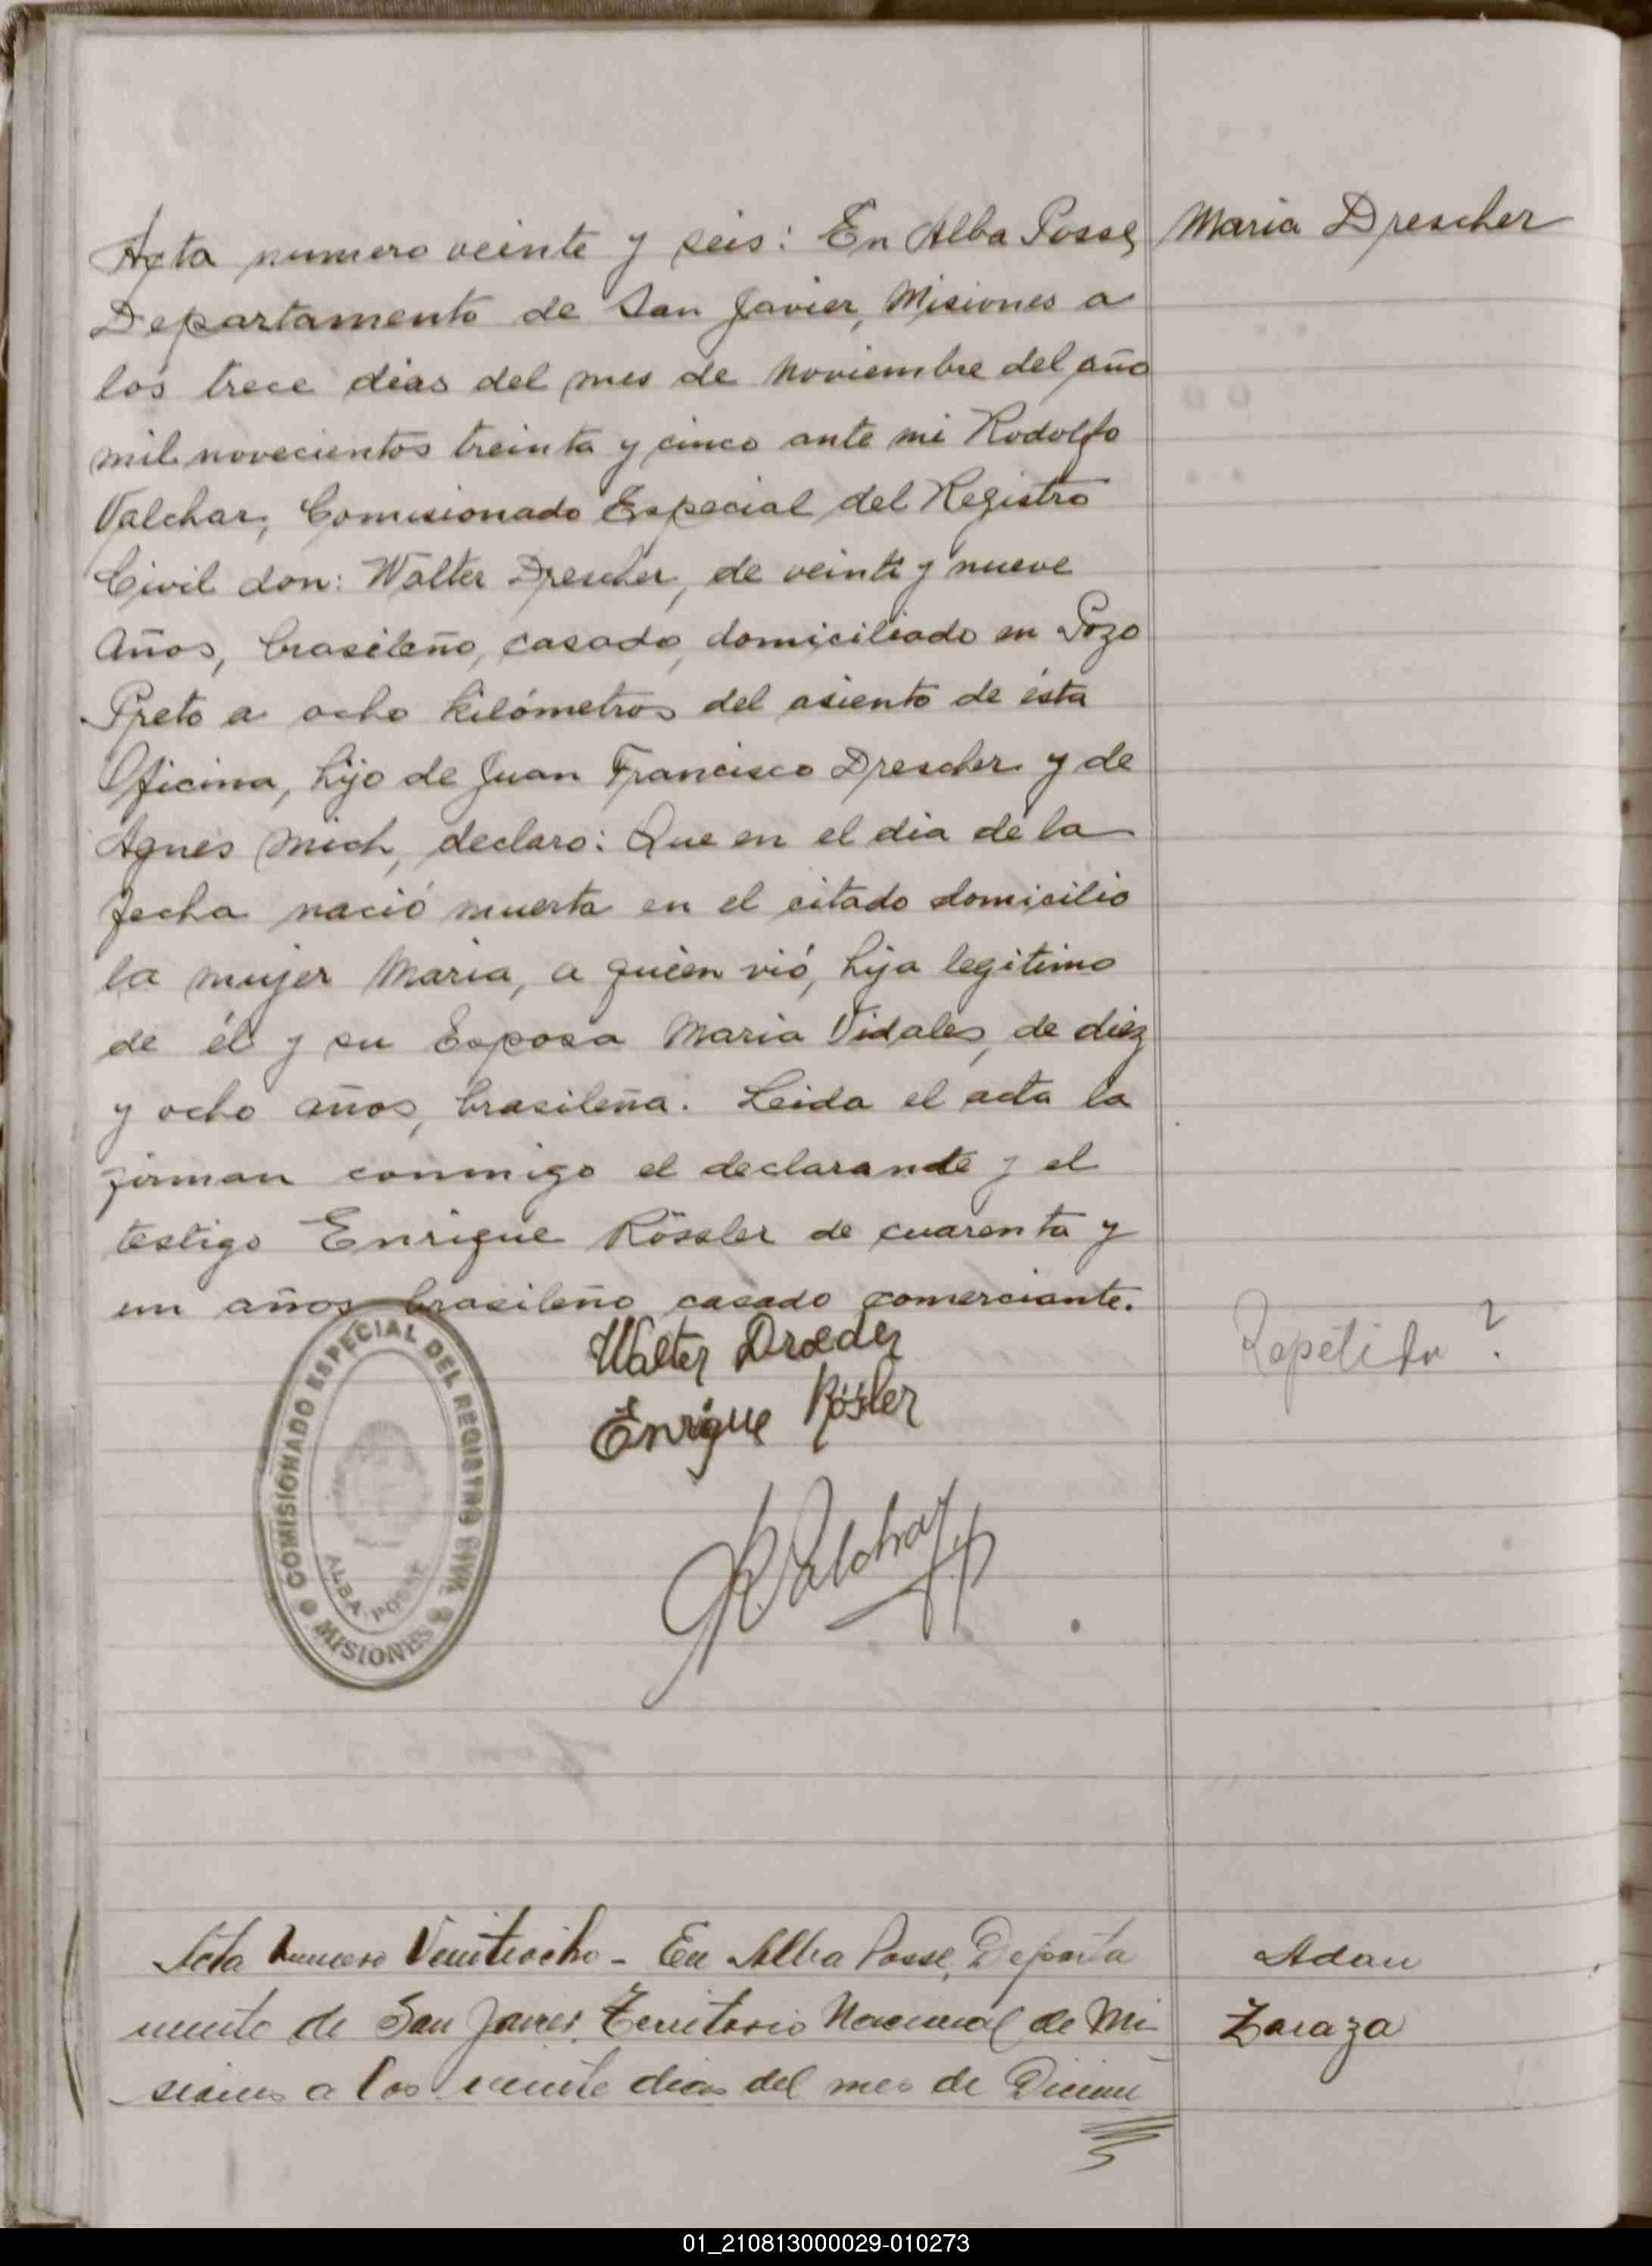 Acta numero veinte y seis: En Alba Posse,
Maria Drescher
Departamento de San Javier, Misiones a
los trece dias del mes de Noviembre del año
mil novecientos treinta y cinco ante mi Rodolfo
Valchar, Comisionado Especial del Registro
Civil don: Walter Drescher, de veinte y nueve
Años, brasileño, casado, domiciliado en Pozo
Preto a ocho kilómetros del asiento de ésta
Oficina, hijo de Juan Francisco Drescher y de
Agnes Mich, declaro: Que en el dia de la
fecha nació muerta en el citado domicilio
la mujer Maria, a quien vió, hija legitimo
de él y su Esposa Maria Vidales, de diez
y ocho años, brasileña. Leida el acta la
firman conmigo el declarande y el
testigo Enrique Rössler de cuarenta y
un años brasileño casado comerciante.
Repetido?
Walter
Enrique Rössler
R Valchar
COMISIONADO ESPECIAL DEL REGISTRO CIVIL
ALBA POSSE
MISIONES
Acta Numero Veintiocho - En Alba Posse, Departa
Adan
mento de San Javier, Territorio Nacional de Mi
Zaraza
siones a los veinte dias del mes de Diciem
01_210813000029-010273